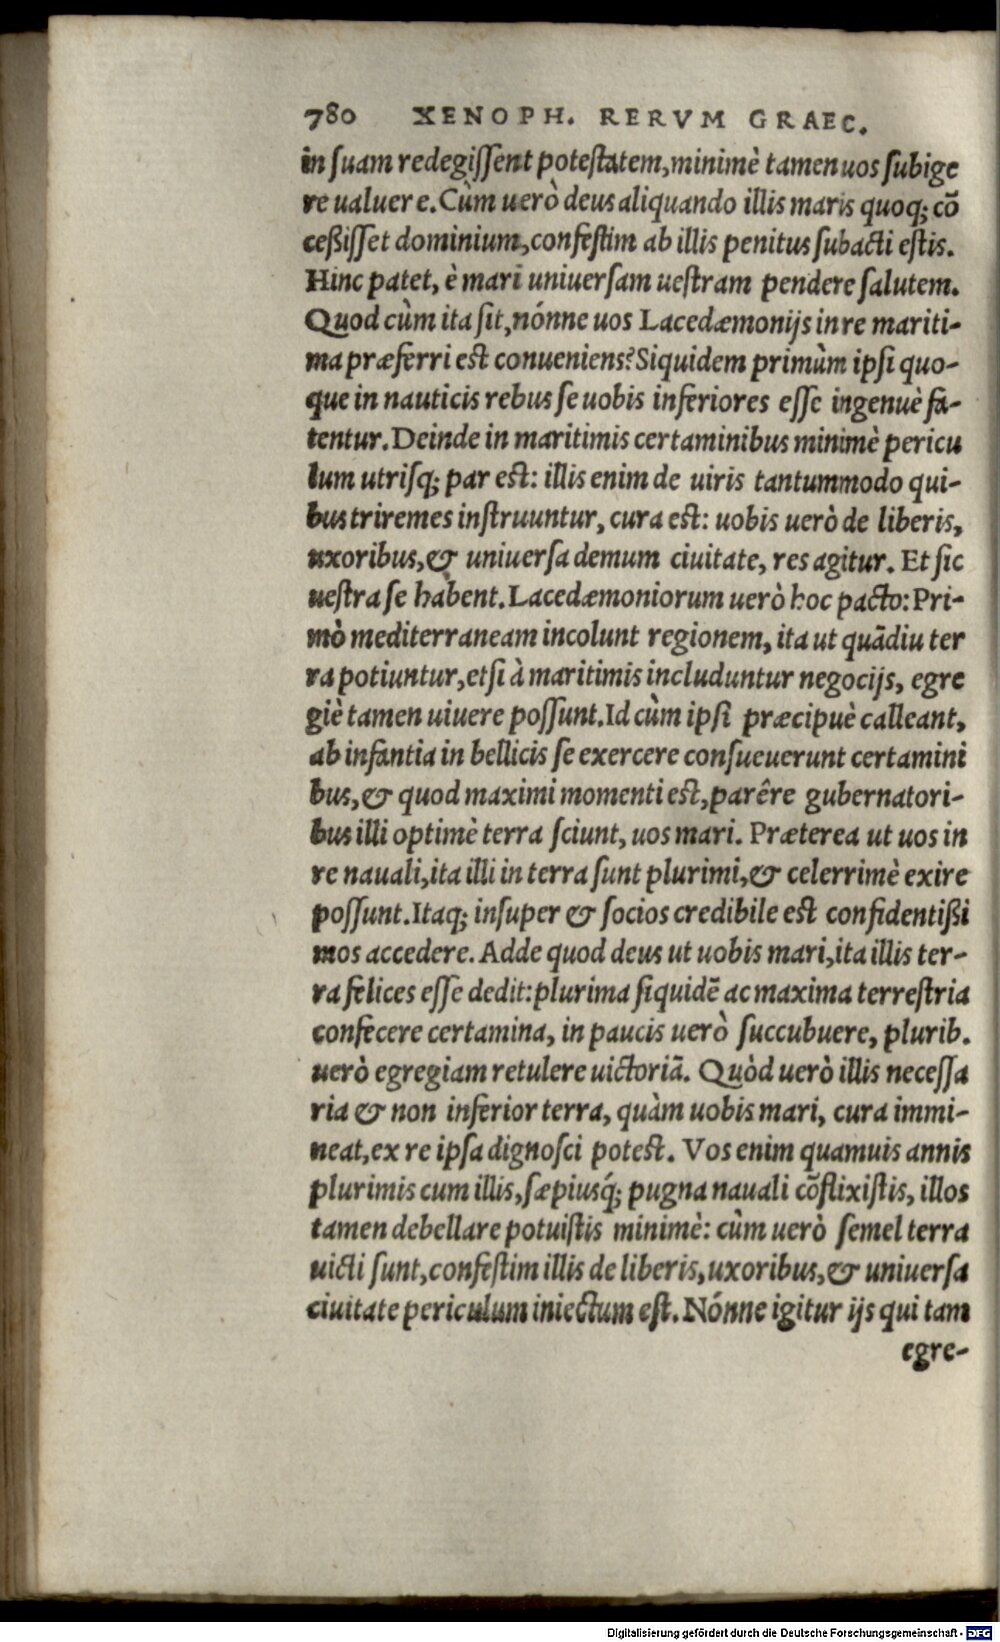 780 XENOPH. RERVM GRAEC.
in ſuam redegiſſent poteſtatem, minimè tamen uos ſubige
re ualuere. Cùm uerò deus aliquando illis maris quoq; cō
ceßiſſet dominium, confeſtim ab illis penitus ſubacti eſtis.
Hinc patet, è mari uniuerſam ueſtram pendere ſalutem.
Quod cùm ita ſit, nónne uos Lacedæmonijs in re mariti-
ma præferri eſt conueniens? Siquidem primùm ipſi quo-
que in nauticis rebus ſe uobis inferiores eſſe ingenuè fa-
tentur. Deinde in maritimis certaminibus minimè pericu
lum utriſq; par eſt: illis enim de uiris tantummodo qui-
bus triremes inſtruuntur, cura eſt: uobis uerò de liberis,
uxoribus, & uniuerſa demum ciuitate, res agitur. Et ſic
ueſtra ſe habent. Lacedæmoniorum uerò hoc pacto: Pri-
mò mediterraneam incolunt regionem, ita ut quādiu ter
ra potiuntur, etſi à maritimis includuntur negocijs, egre
giè tamen uiuere poſſunt. Id cùm ipſi præcipuè calleant,
ab infantia in bellicis ſe exercere conſueuerunt certamini
bus, & quod maximi momenti eſt, parêre gubernatori-
bus illi optimè terra ſciunt, uos mari. Præterea ut uos in
re nauali, ita illi in terra ſunt plurimi, & celerrimè exire
poſſunt. Itaq; inſuper & ſocios credibile eſt confidentißi
mos accedere. Adde quod deus ut uobis mari, ita illis ter-
ra felices eſſe dedit: plurima ſiquidē ac maxima terreſtria
confecere certamina, in paucis uerò ſuccubuere, plurib.
uerò egregiam retulere uictoriā. Quòd uerò illis neceſſa
ria & non inferior terra, quàm uobis mari, cura immi-
neat, ex re ipſa dignoſci poteſt. Vos enim quamuis annis
plurimis cum illis, ſæpiusq́; pugna nauali cōflixiſtis, illos
tamen debellare potuiſtis minimè: cùm uerò ſemel terra
uicti ſunt, confeſtim illis de liberis, uxoribus, & uniuerſa
ciuitate periculum iniectum eſt. Nónne igitur ijs qui tam
egre-
Digitalisierung gefördert durch die Deutsche Forschungsgemeinschaft - DFG